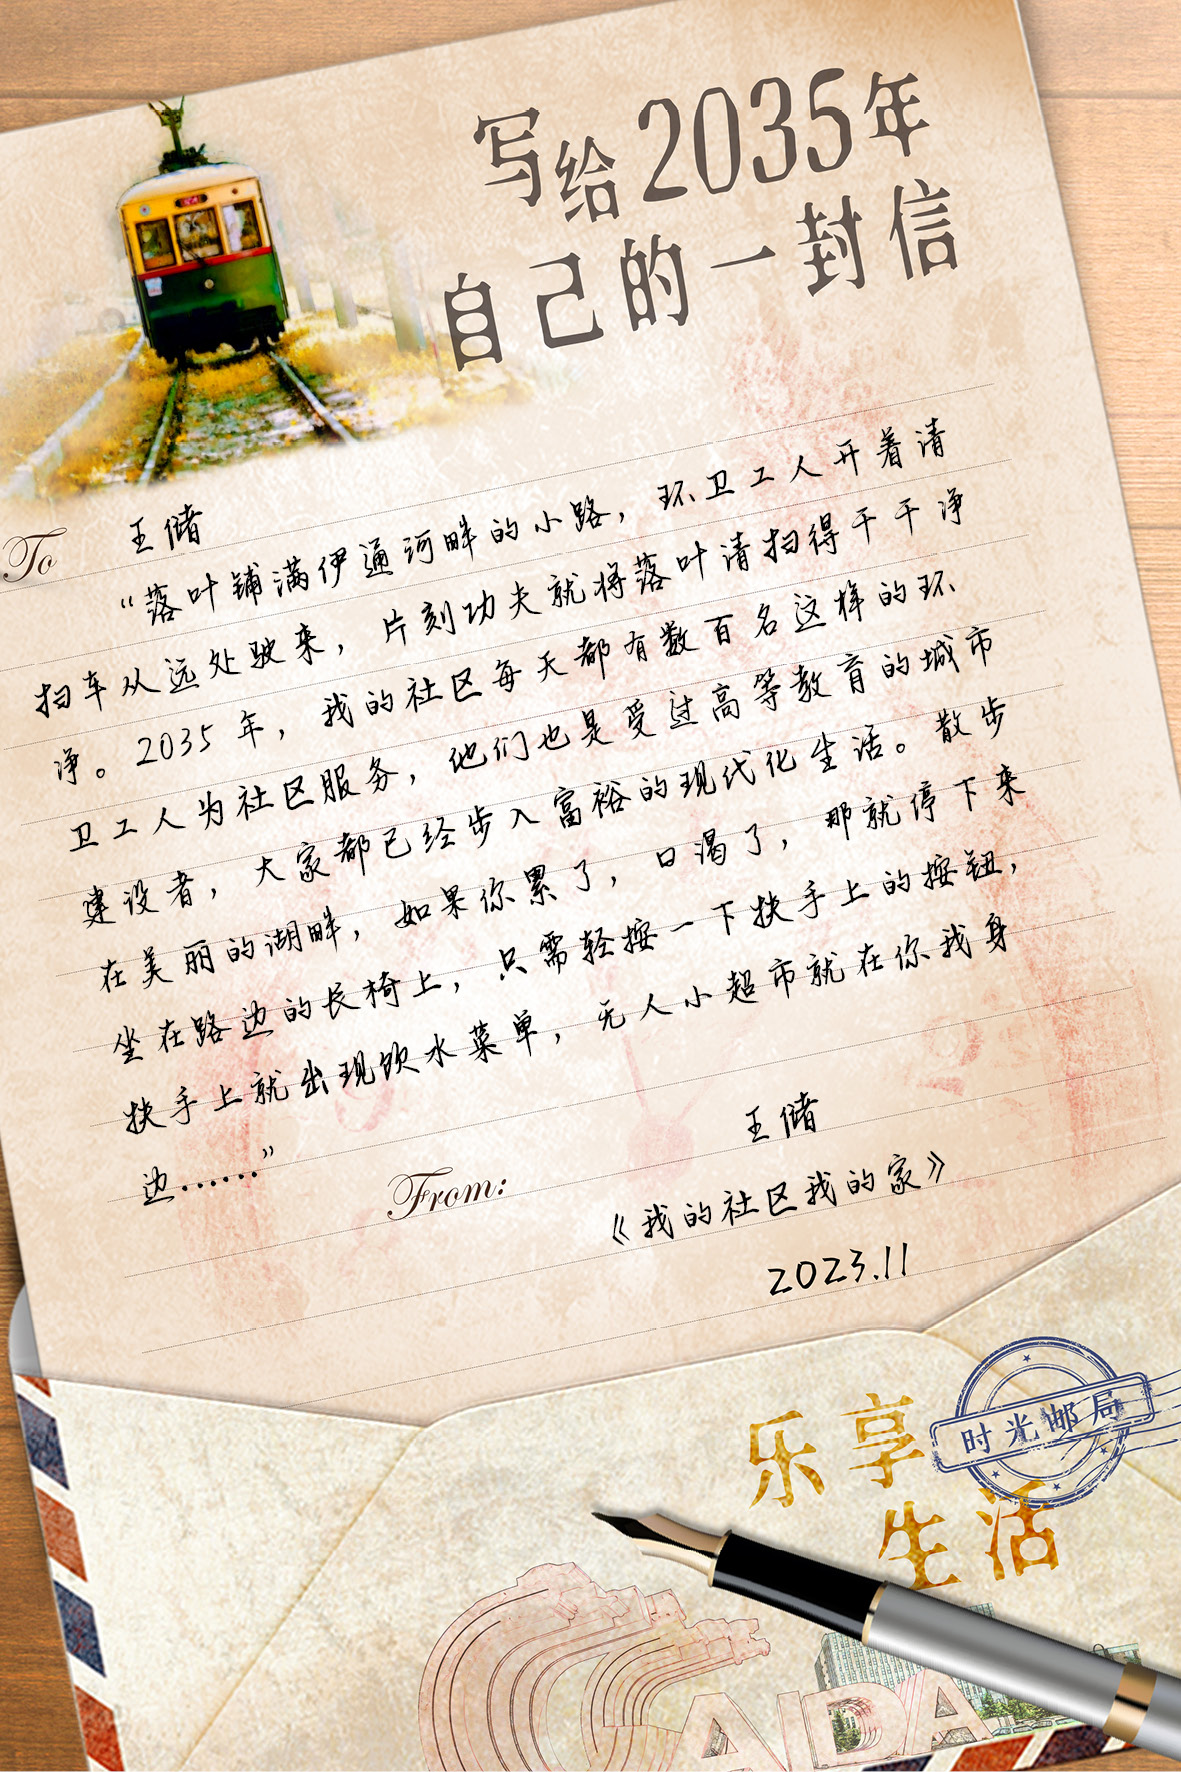 写给2035年
自己的一封信
To 王储
“落叶铺满伊通河畔的小路，环卫工人开着清
扫车从远处驶来，片刻功夫就将落叶清扫得干干净
净。2035年，我的社区每天都有数百名这样的环
卫工人为社区服务，他们也是受过高等教育的城市
建设者，大家都已经步入富裕的现代化生活。散步
在美丽的湖畔，如果你累了，口渴了，那就停下来
坐在路边的长椅上，只需轻按一下扶手上的按钮，
扶手上就出现饮水菜单，无人小超市就在你我身
边……”
From: 王储
《我的社区我的家》
2023.11
时光邮局
乐享
生活